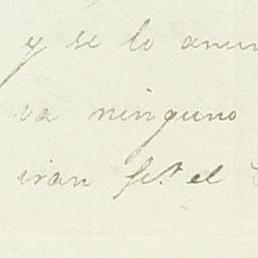 y se lo anun
va ninguno
iran fh.ª el